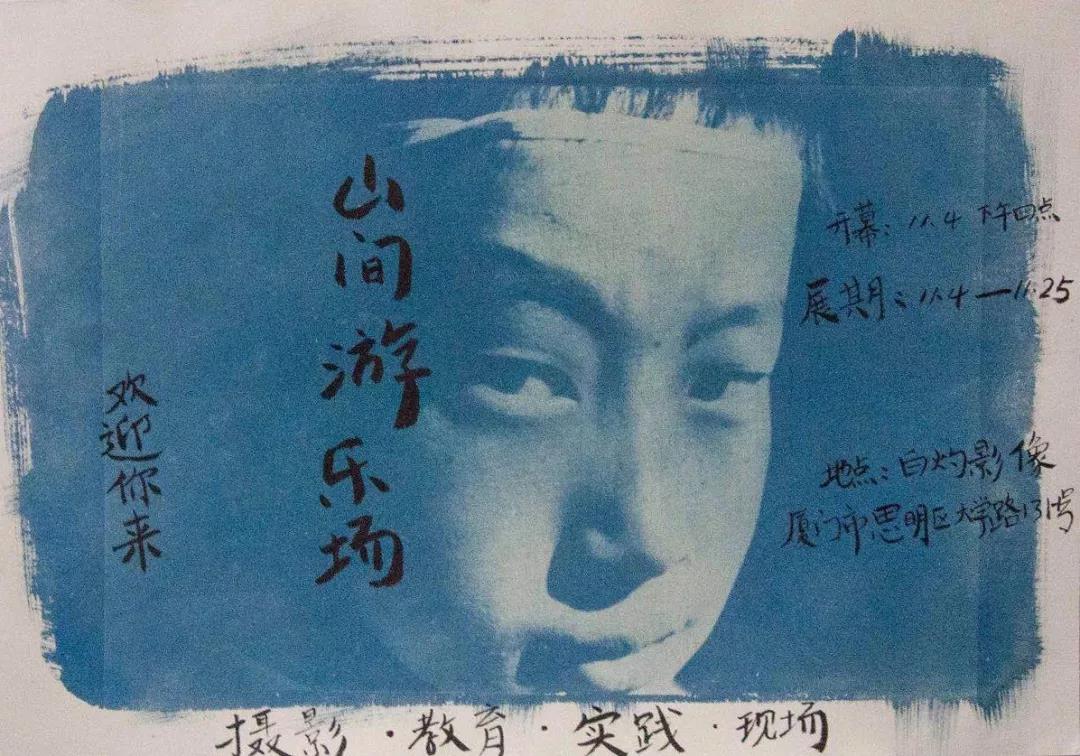 山间游乐场
欢迎你来
开幕：11.4 下午四点
展期：11.4—11.25
地点：白灼影像
厦门市思明区大学路131号
摄影·教育·实践·现场